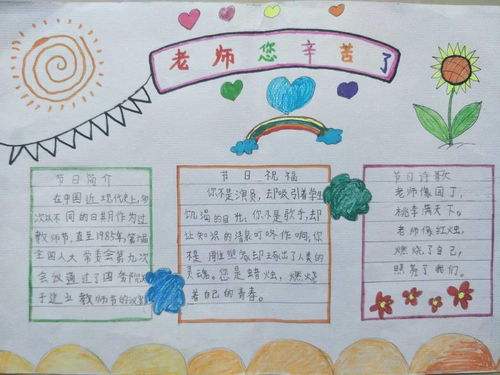 老师您辛苦了
节日简介
在中国近现代史上,多
次以不同的日期作为过
教师节,直至1985年,第六届
全国人大常委会第九次
会议通过了国务院关
于建立教师节的议案
节日祝福
你不是演员,却吸引着学生
饥渴的目光;你不是歌手,却
让知识的清泉叮咚作响,你
不是雕塑家却琢出了人类的
灵魂。您是蜡烛,燃烧
着自己的青春。
节日诗歌
老师像园丁,
桃李满天下。
老师像红烛,
燃烧了自己,
照亮了我们。